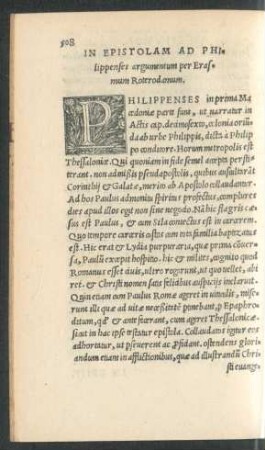 508
IN EPISTOLAM AD PHI-
lippenses argumentum per Eras-
mum Roterodamum.
PHILIPPENSES in prima Ma
cedoniæ parte sunt, ut narratur in
Actis cap. decimosexto, colonia oriun
da ab urbe Philippis, dicta à Philip
po conditore. Horum metropolis est
Thessalonicæ. Qui quoniam in fide semel accepta persti
terant, non admissis pseudapostolis, quibus auscultarāt
Corinthij & Galatæ, merito ab Apostolo collaudantur.
Ad hos Paulus admonitu spiritus profectus, complureis
dies apud illos egit non sine negocio. Nā hic flagris cæ
sus est Paulus, & cum Sila coniectus est in carcerem.
Quo tempore carceris custos cum tota familia baptizatus
est. Hic erat & Lydia purpuraria, quæ prima conuer
sa, Pauli excepit hospitio. hic & milites, cognito quod
Romanus esset duis, ultro rogarunt, ut quo uellet, abi
ret. & Christi nomen satis felicibus auspicijs inclaruit.
Quin etiam cum Paulus Romæ ageret in uinculis, mise-
runt illi quæ ad uitæ necessitatē
ditum, qd' & ante fecerant, cum ageret Thessalonicæ.
sicut in hac ipse testatur epistola. Collaudans igitur eos
adhortatur, ut perseuerent ac proficiant. ostendens glori-
andum etiam in afflictionibus, quæ ad illustrandū Chri
sti euange-